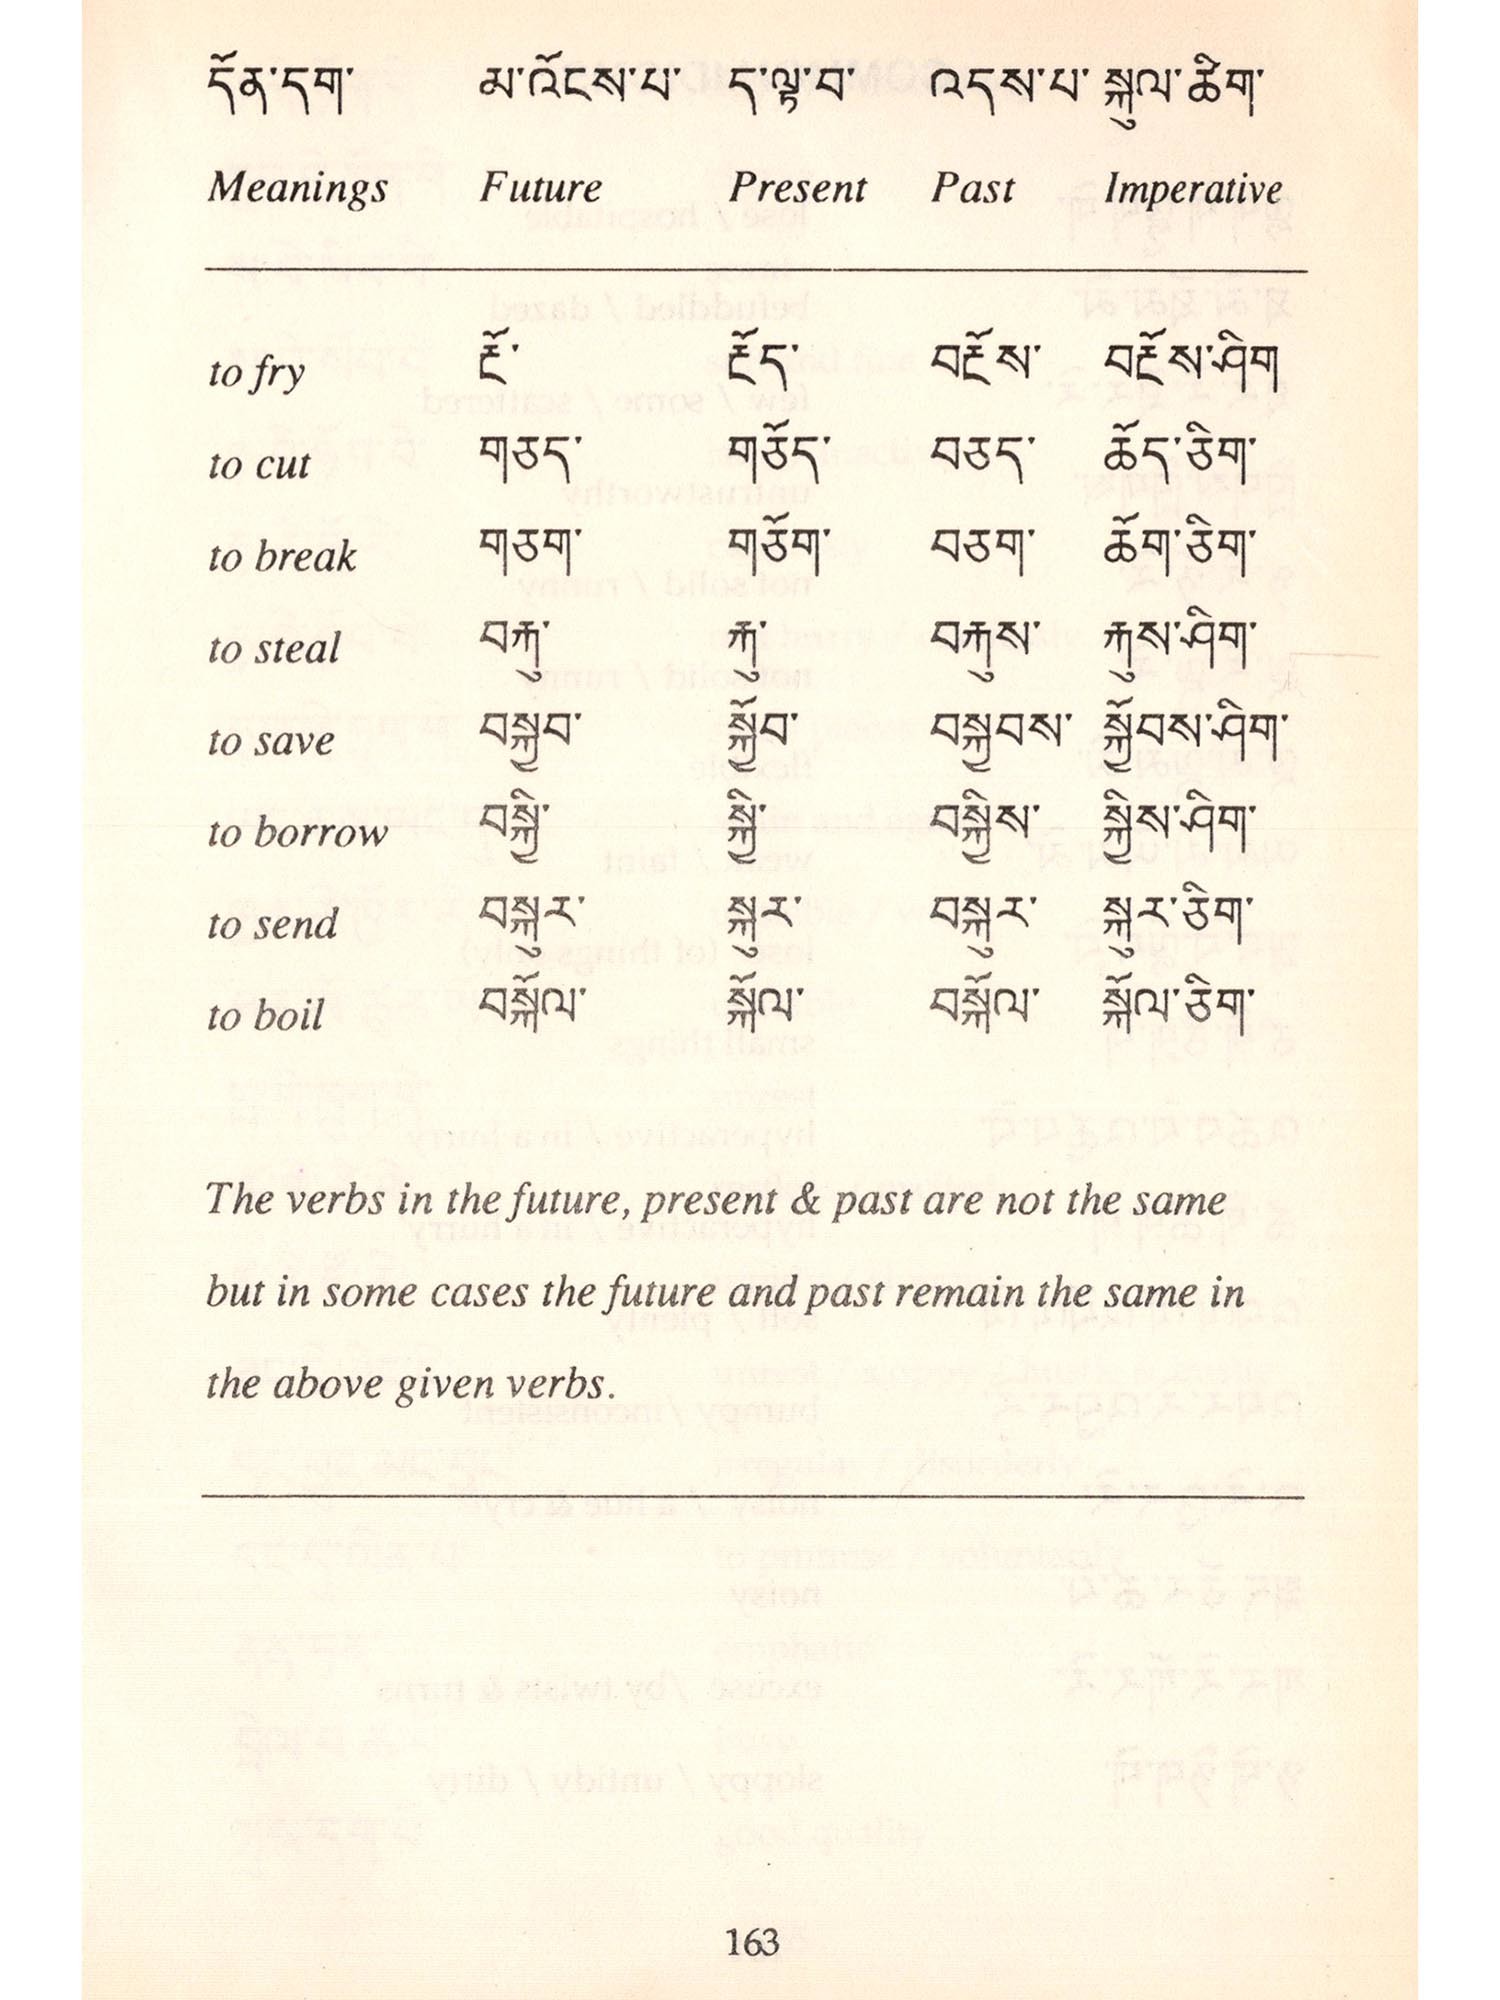 དོན་དག་ མ་འོངས་པ་ ད་ལྟ་བ་ འདས་པ་ སྐུལ་ཚིག་
Meanings Future Present Past Imperative
to fry རྔོ་ རྔོད་ བརྔོས་ བརྔོས་ཤིག
to cut གཅད་ གཅོད་ བཅད་ ཆོད་ཅིག་
to break གཅག་ གཅོག་ བཅག་ ཆོག་ཅིག་
to steal བརྐུ་ རྐུ་ བརྐུས་ རྐུས་ཤིག་
to save བསྐྱབ་ སྐྱོབ་ བསྐྱབས་ སྐྱོབས་ཤིག་
to borrow བསྐྱི་ སྐྱི་ བསྐྱིས་ སྐྱིས་ཤིག་
to send བསྐུར་ སྐུར་ བསྐུར་ སྐུར་ཅིག་
to boil བསྐོལ་ སྐོལ་ བསྐོལ་ སྐོལ་ཅིག་
The verbs in the future, present & past are not the same
but in some cases the future and past remain the same in
the above given verbs.
163